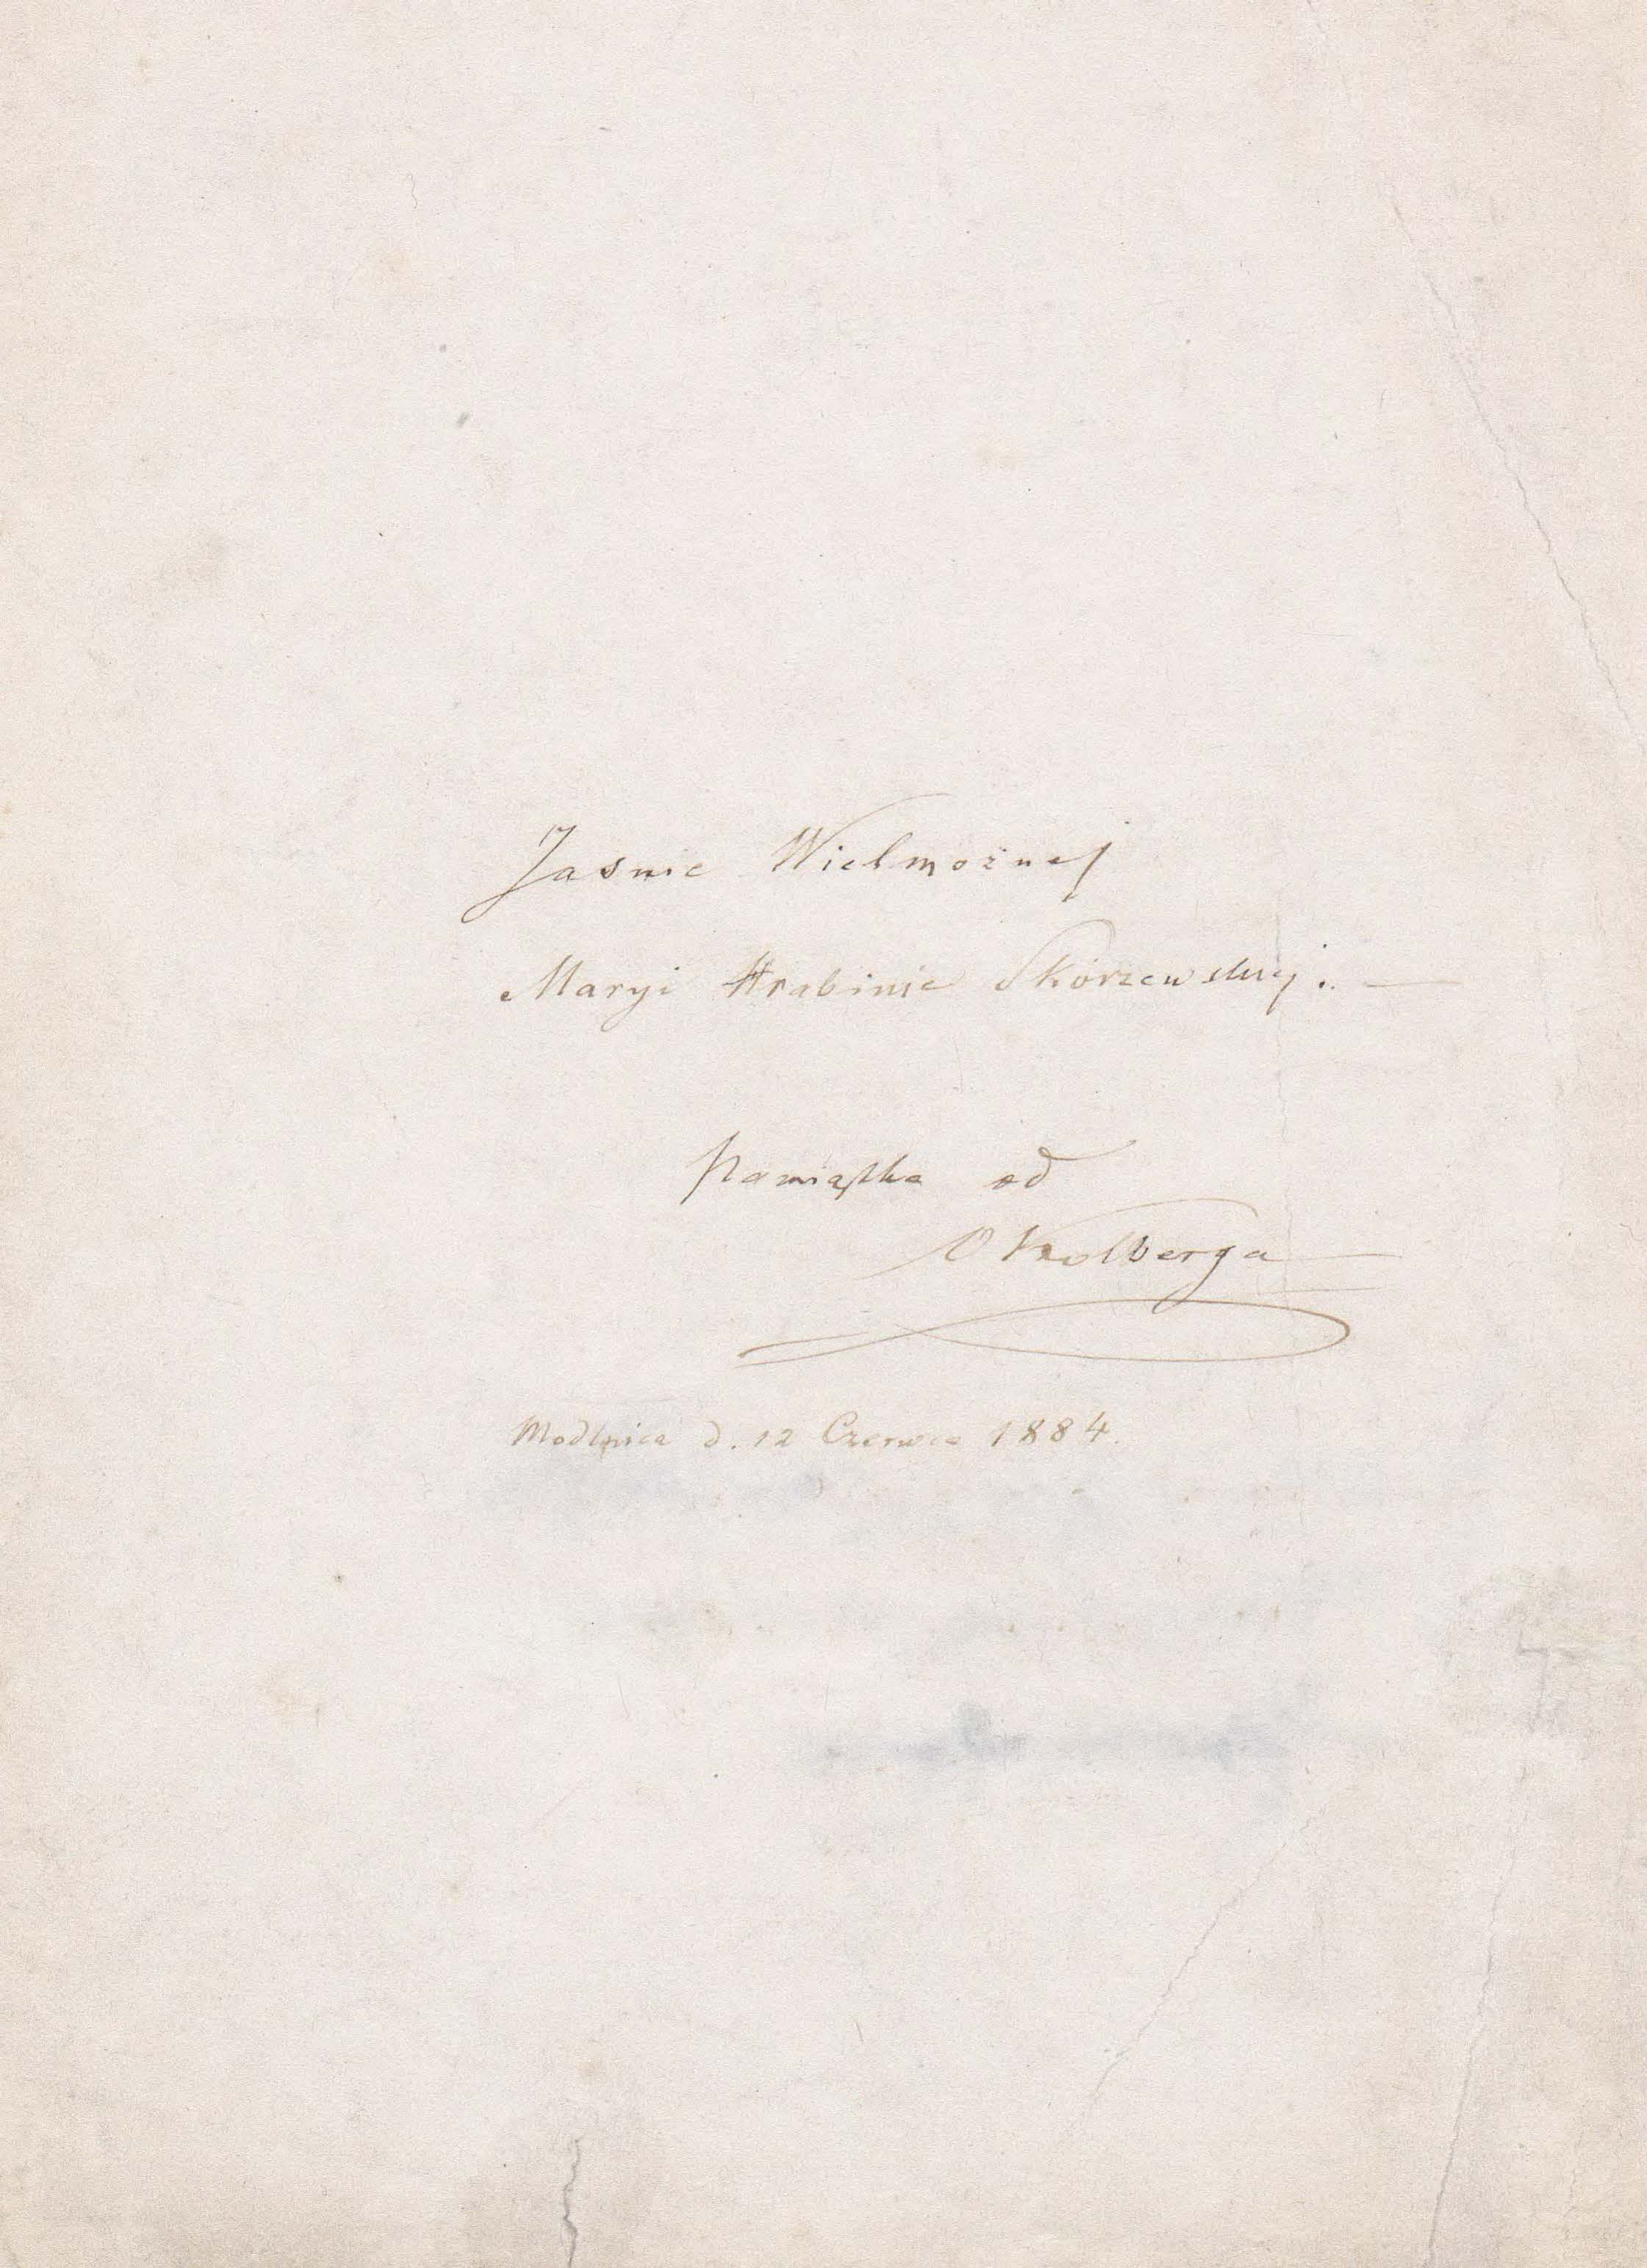 Jaśnie Wielmożnej
Maryi Hrabinie Skórzewskiej. —
Pamiątka od
O Kolberga
Modlnica d. 12 Czerwca 1884.